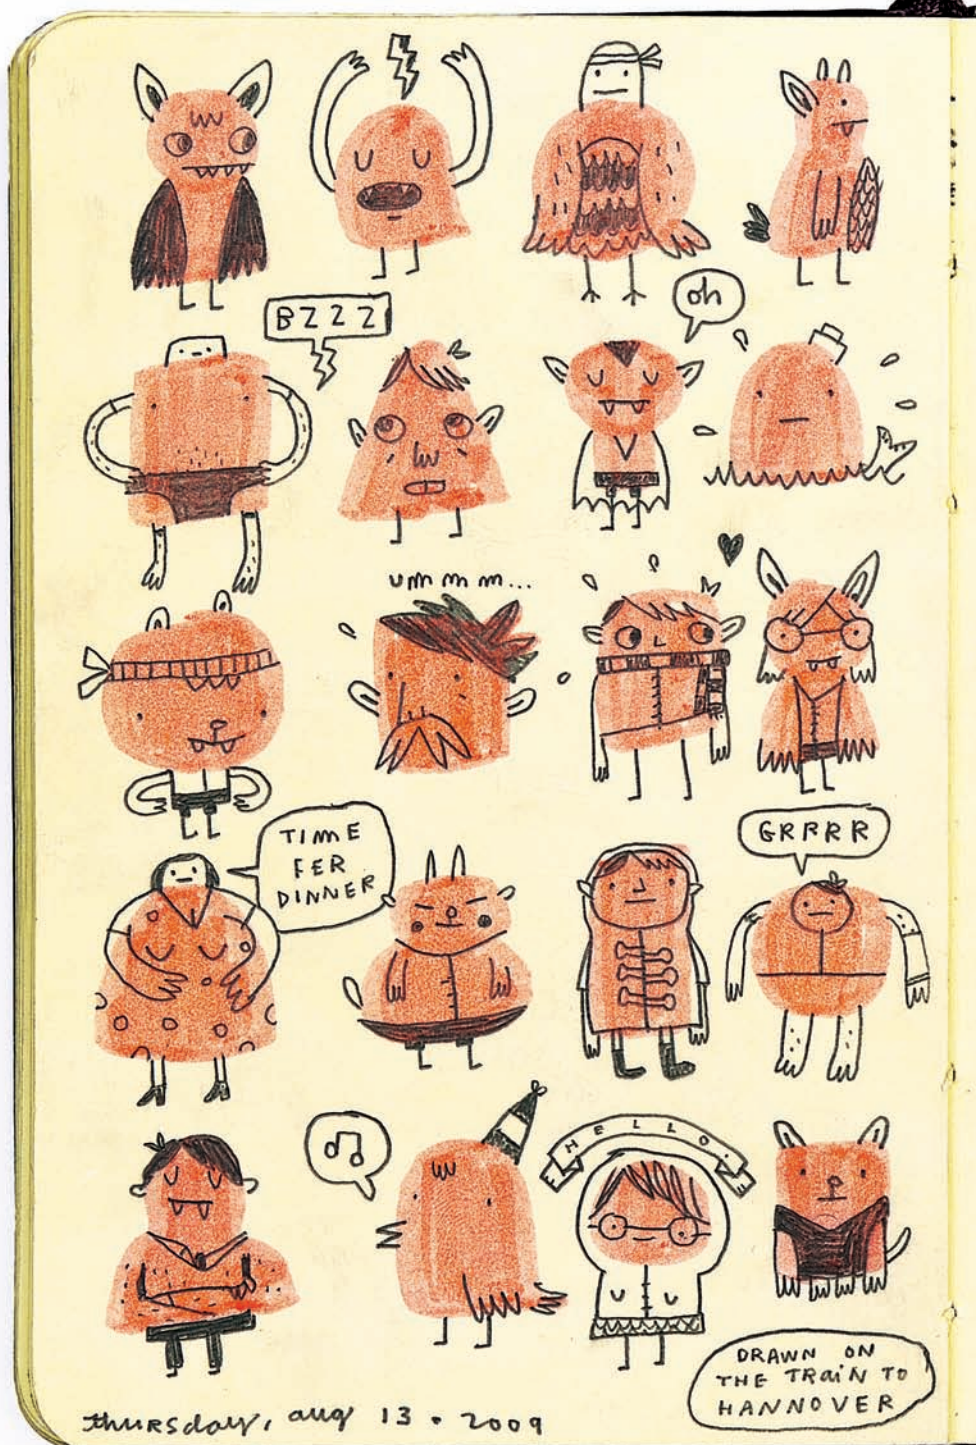 BZZZ
oh
ummm...
TIME
FER
DINNER
GRRRR
HELLO
DRAWN ON
THE TRAiN TO
HANNOVER
thuRsday, aug 13 . 2009